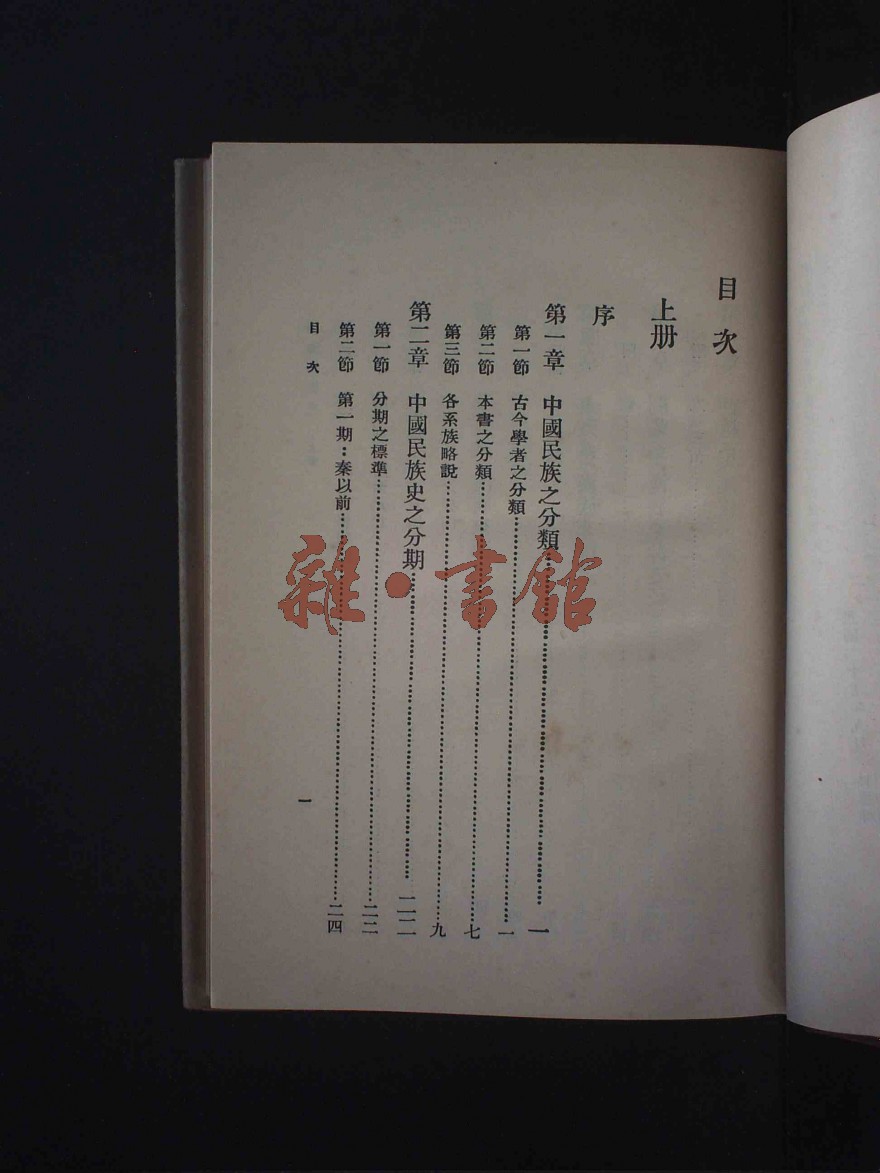 目次
上册
序
第一章 中國民族之分類……………………一
第一節 古今學者之分類……………………一
第二節 本書之分類……………………七
第三節 各系族略說……………………九
第二章 中國民族史之分期……………………二二
第一節 分期之標準……………………二二
第二節 第一期：秦以前……………………二四
目次
一
雜·書館